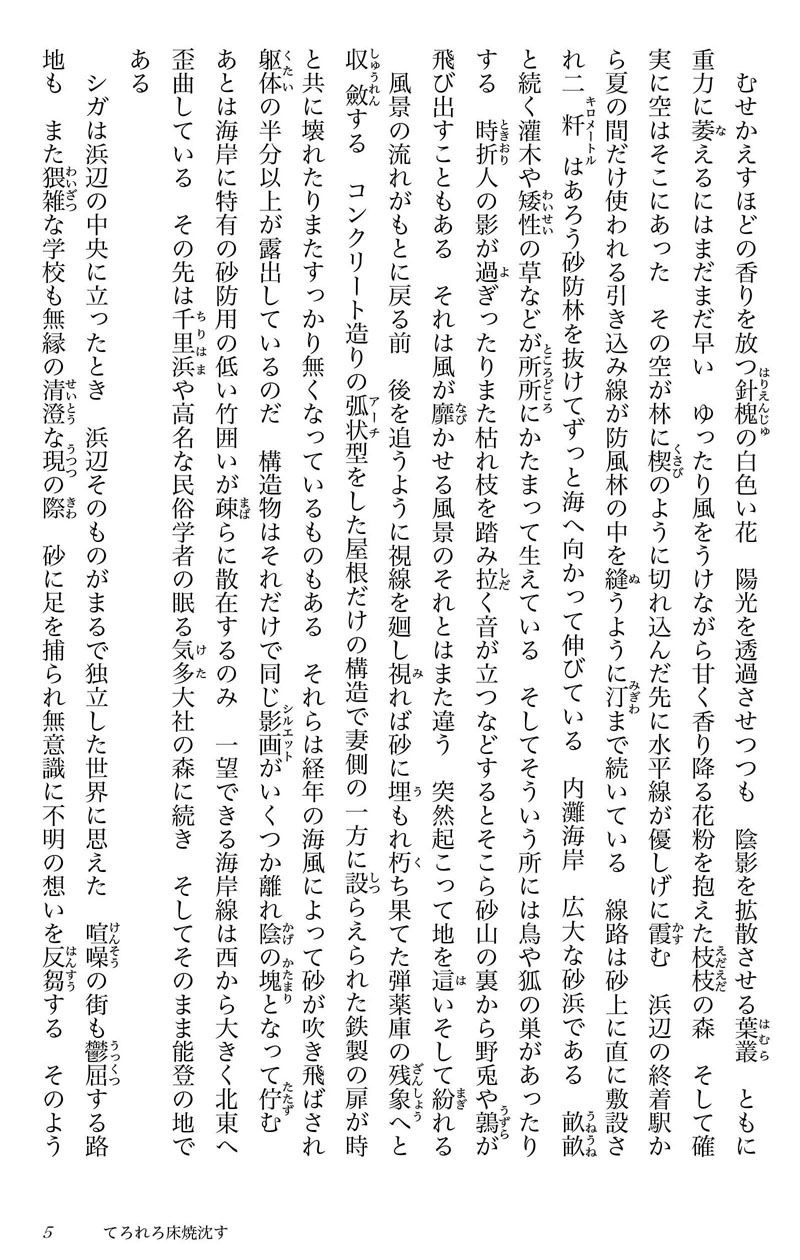 むせかえすほどの香りを放つ針槐の白色い花　陽光を透過させつつも　陰影を拡散させる葉叢　ともに
重力に萎えるにはまだまだ早い　ゆったり風をうけながら甘く香り降る花粉を抱えた枝枝の森　そして確
実に空はそこにあった　その空が林に楔のように切れ込んだ先に水平線が優しげに霞む　浜辺の終着駅か
ら夏の間だけ使われる引き込み線が防風林の中を縫うように汀まで続いている　線路は砂上に直に敷設さ
れ二粁はあろう砂防林を抜けてずっと海へ向かって伸びている　内灘海岸　広大な砂浜である　畝畝
と続く灌木や矮性の草などが所所にかたまって生えている　そしてそういう所には鳥や狐の巣があったり
する　時折人の影が過ぎったりまた枯れ枝を踏み拉く音が立つなどするとそこら砂山の裏から野兎や鶉が
飛び出すこともある　それは風が靡かせる風景のそれとはまた違う　突然起こって地を這いそして紛れる
風景の流れがもとに戻る前　後を追うように視線を廻し視れば砂に埋もれ朽ち果てた弾薬庫の残象へと
収斂する　コンクリート造りの弧状型をした屋根だけの構造で妻側の一方に設らえられた鉄製の扉が時
と共に壊れたりまたすっかり無くなっているものもある　それらは経年の海風によって砂が吹き飛ばされ
躯体の半分以上が露出しているのだ　構造物はそれだけで同じ影画がいくつか離れ陰の塊となって佇む
あとは海岸に特有の砂防用の低い竹囲いが疎らに散在するのみ　一望できる海岸線は西から大きく北東へ
歪曲している　その先は千里浜や高名な民俗学者の眠る気多大社の森に続き　そしてそのまま能登の地で
ある
シガは浜辺の中央に立ったとき　浜辺そのものがまるで独立した世界に思えた　喧噪の街も鬱屈する路
地も　また猥雑な学校も無縁の清澄な現の際　砂に足を捕られ無意識に不明の想いを反芻する　そのよう
5　てろれろ床焼沈す